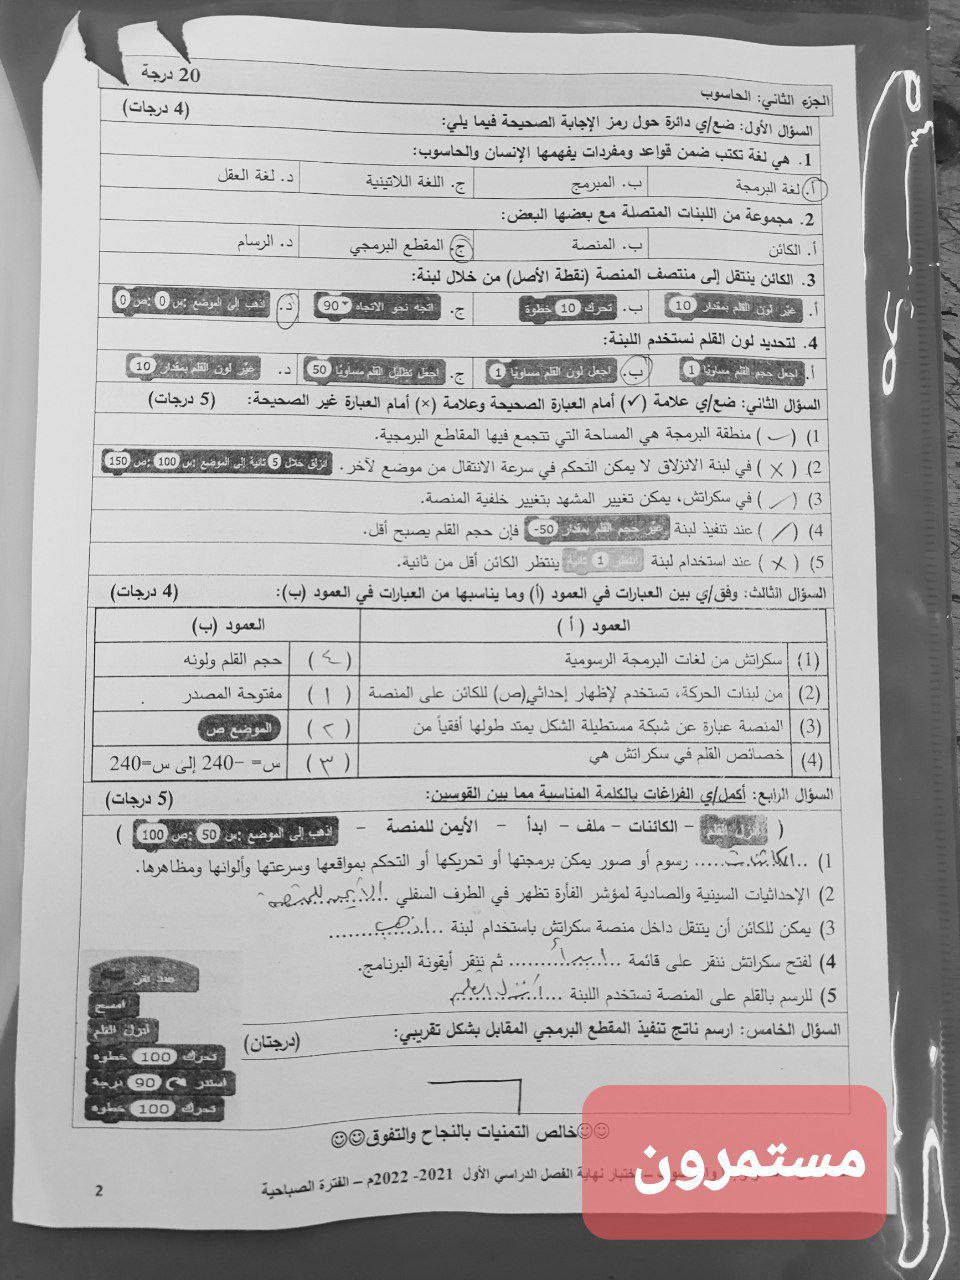 الجزء الثاني: الحاسوب 20 درجة
السؤال الأول: ضع/ي دائرة حول رمز الإجابة الصحيحة فيما يلي: (4 درجات)
1. هي لغة تكتب ضمن قواعد ومفردات يفهمها الإنسان والحاسوب:
أ. لغة البرمجة ب. المبرمج ج. اللغة اللاتينية د. لغة العقل
2. مجموعة من اللبنات المتصلة مع بعضها البعض:
أ. الكائن ب. المنصة ج. المقطع البرمجي د. الرسام
3. الكائن ينتقل إلى منتصف المنصة (نقطة الأصل) من خلال لبنة:
أ. غيّر لون القلم بمقدار 10 ب. تحرك 10 خطوة ج. اتجه نحو الاتجاه 90 د. اذهب إلى الموضع س: 0 ص: 0
4. لتحديد لون القلم نستخدم اللبنة:
أ. اجعل حجم القلم مساويًا 1 ب. اجعل لون القلم مساويًا 1 ج. اجعل تظليل القلم مساويًا 50 د. غيّر لون القلم بمقدار 10
السؤال الثاني: ضع/ي علامة (✓) أمام العبارة الصحيحة وعلامة (×) أمام العبارة غير الصحيحة: (5 درجات)
1) (✓) منطقة البرمجة هي المساحة التي تتجمع فيها المقاطع البرمجية.
2) (×) في لبنة الانزلاق لا يمكن التحكم في سرعة الانتقال من موضع لآخر. انزلق خلال 5 ثانية إلى الموضع س: 100 ص: 150
3) (✓) في سكراتش، يمكن تغيير المشهد بتغيير خلفية المنصة.
4) (✓) عند تنفيذ لبنة غيّر حجم القلم بمقدار -50 فإن حجم القلم يصبح أقل.
5) (×) عند استخدام لبنة انتظر 1 ثانية ينتظر الكائن أقل من ثانية.
السؤال الثالث: وفق/ي بين العبارات في العمود (أ) وما يناسبها من العبارات في العمود (ب): (4 درجات)
العمود (أ) العمود (ب)
(1) سكراتش من لغات البرمجة الرسومية (٤) حجم القلم ولونه
(2) من لبنات الحركة، تستخدم لإظهار إحداثي(ص) للكائن على المنصة (١) مفتوحة المصدر
(3) المنصة عبارة عن شبكة مستطيلة الشكل يمتد طولها أفقياً من (٢) الموضع ص
(4) خصائص القلم في سكراتش هي (٣) س= -240 إلى س=240
السؤال الرابع: أكمل/ي الفراغات بالكلمة المناسبة مما بين القوسين: (5 درجات)
( أنزل القلم - الكائنات - ملف - ابدأ - الأيمن للمنصة - اذهب إلى الموضع س: 50 ص: 100 )
1) الكائنات رسوم أو صور يمكن برمجتها أو تحريكها أو التحكم بمواقعها وسرعتها وألوانها ومظاهرها.
2) الإحداثيات السينية والصادية لمؤشر الفأرة تظهر في الطرف السفلي الأيمن للمنصة
3) يمكن للكائن أن يتنقل داخل منصة سكراتش باستخدام لبنة اذهب
4) لفتح سكراتش ننقر على قائمة ابدأ ثم ننقر أيقونة البرنامج.
5) للرسم بالقلم على المنصة نستخدم اللبنة أنزل القلم
السؤال الخامس: ارسم ناتج تنفيذ المقطع البرمجي المقابل بشكل تقريبي: (درجتان)
عند نقر
امسح
أنزل القلم
تحرك 100 خطوة
استدر 90 درجة
تحرك 100 خطوة
خالص التمنيات بالنجاح والتفوق
اختبار نهاية الفصل الدراسي الأول 2021- 2022م – الفترة الصباحية
2
مستمرون